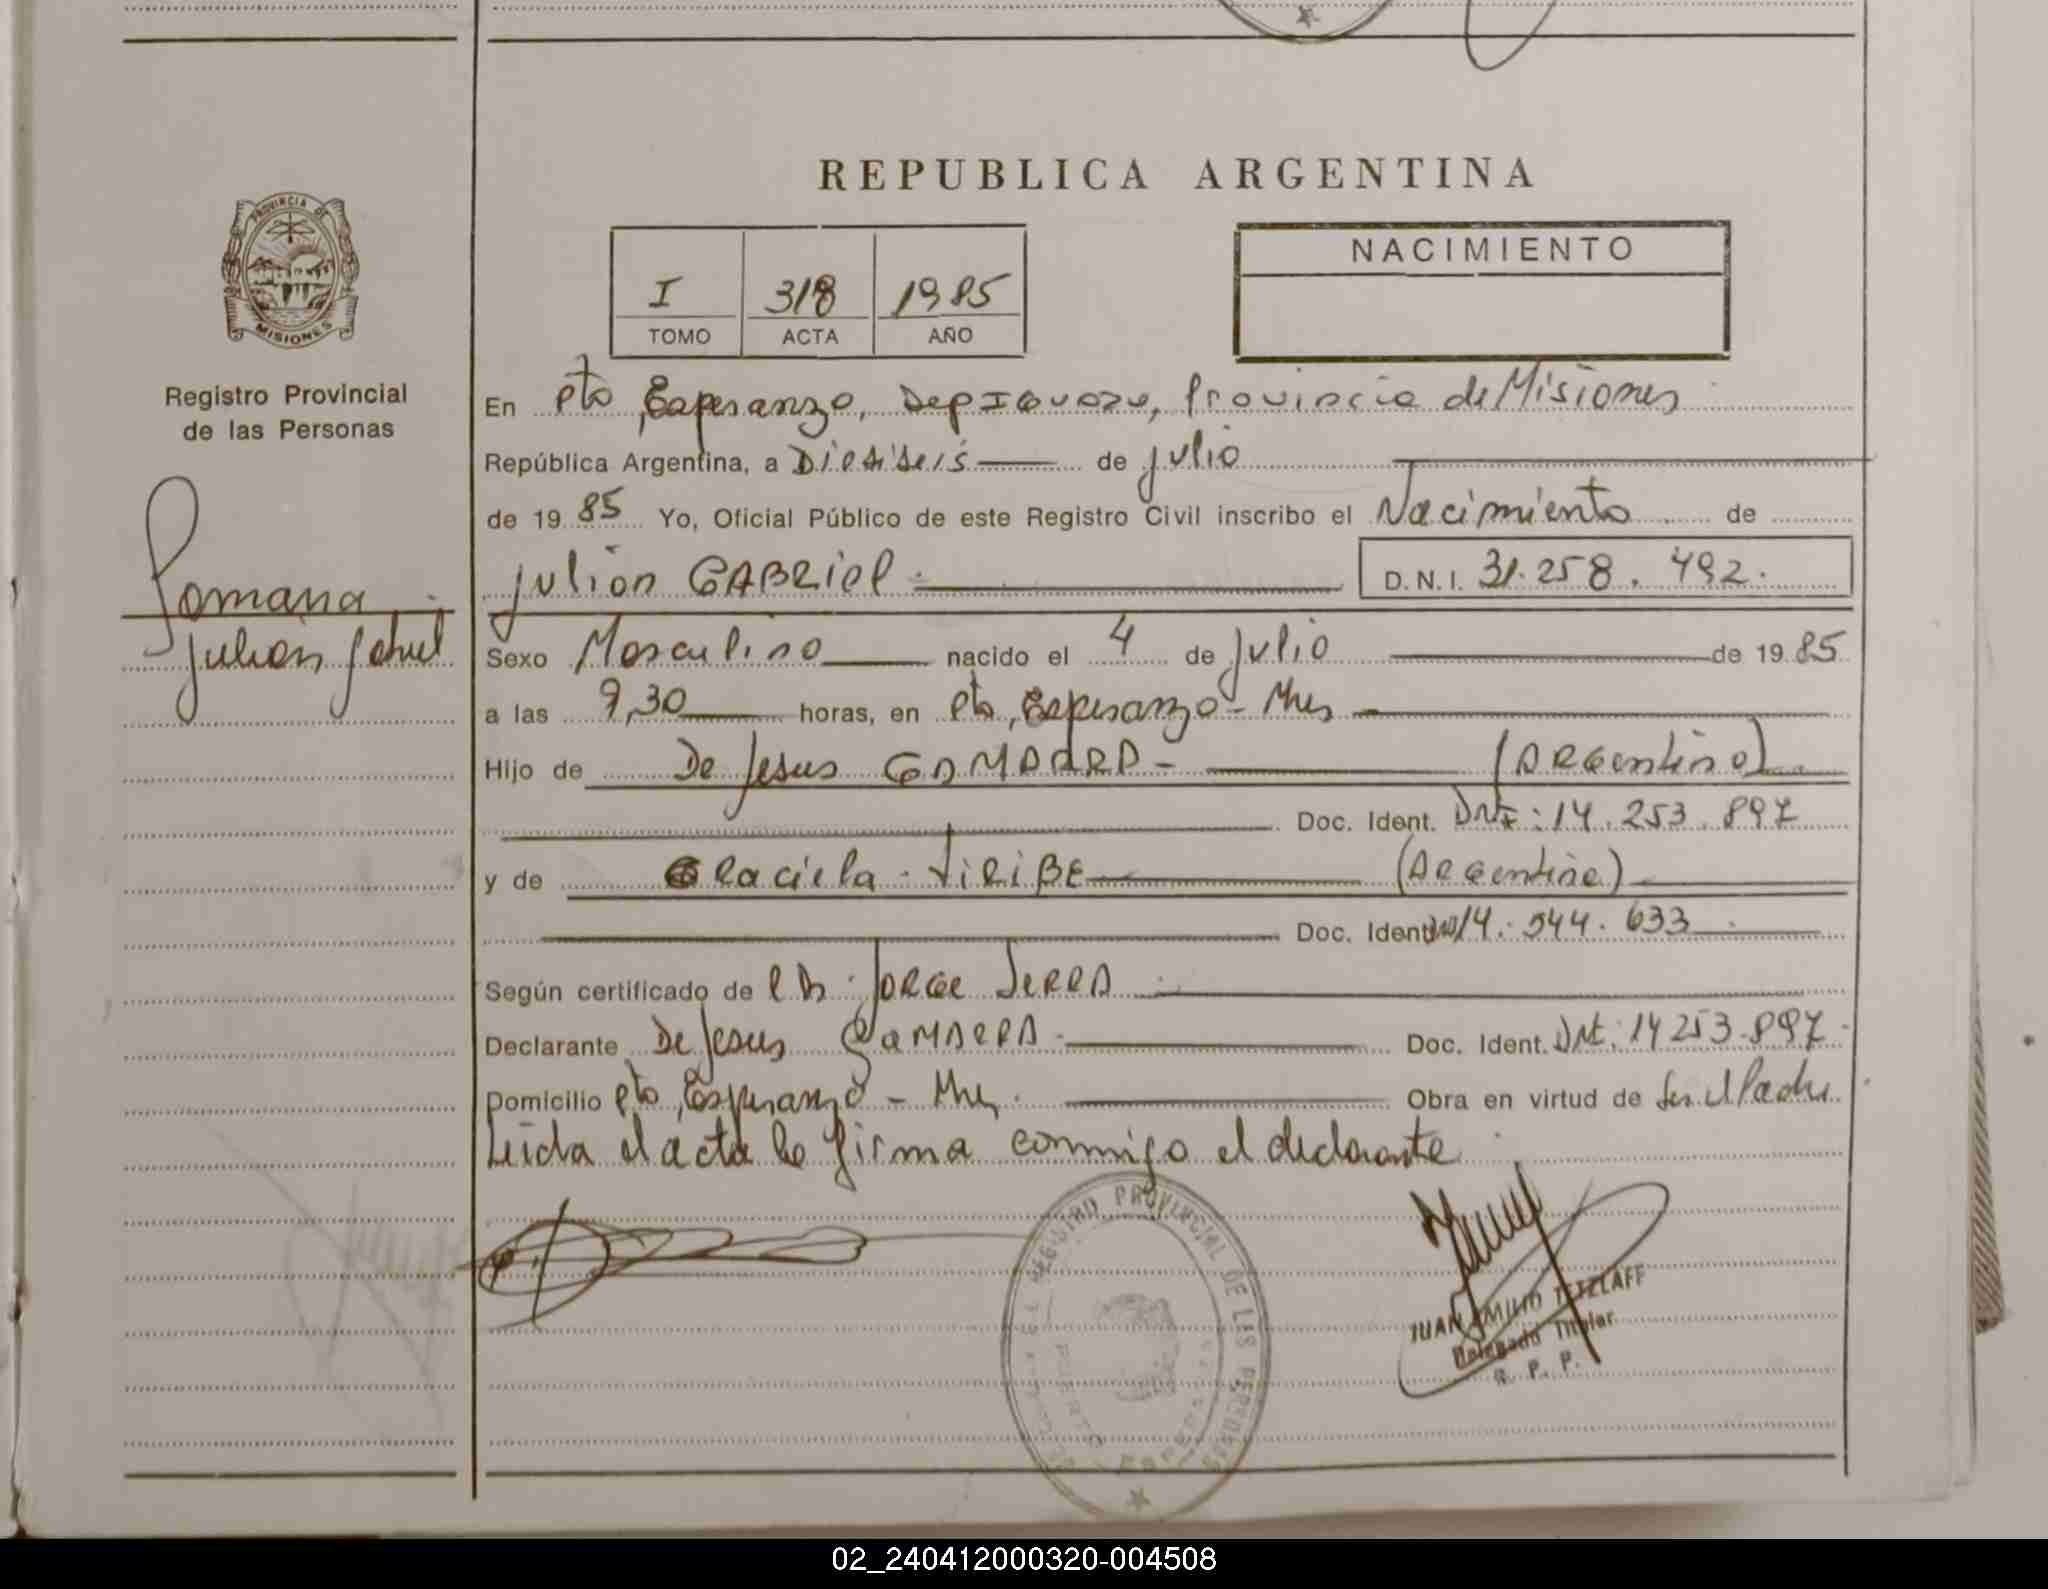 REPUBLICA ARGENTINA
PROVINCIA DE
MISIONES
Registro Provincial
de las Personas
I 318 1985
TOMO ACTA AÑO
NACIMIENTO
En Pto Esperanza, Dep Iguazu, Provincia de Misiones
República Argentina, a Dieciseis de julio
de 1985 Yo, Oficial Público de este Registro Civil inscribo el Nacimiento de
Julian GABRiel D.N.I. 31.258.492.
Julian
Sexo Masculino nacido el 4 de julio de 1985
a las 9,30 horas, en Pto, Esperanza - Mnes
Hijo de De Jesus GAMARRA - (ARGentino)
Doc. Ident. DNI: 14.253.897
y de Graciela (ARGentina)
Doc. Ident. 14.544.633
Según certificado de JORGE
Declarante De Jesus GAMARRA - Doc. Ident. DNI: 14253.897
Domicilio Pto, Esperanza - Mnes. Obra en virtud de Ser el Padre
Leida el acta la firma conmigo el declarante
REGISTRO PROVINCIAL DE LAS PERSONAS
PUERTO ESPERANZA
JUAN EMILIO TETZLAFF
Delegado Titular
R. P. P.
02_240412000320-004508